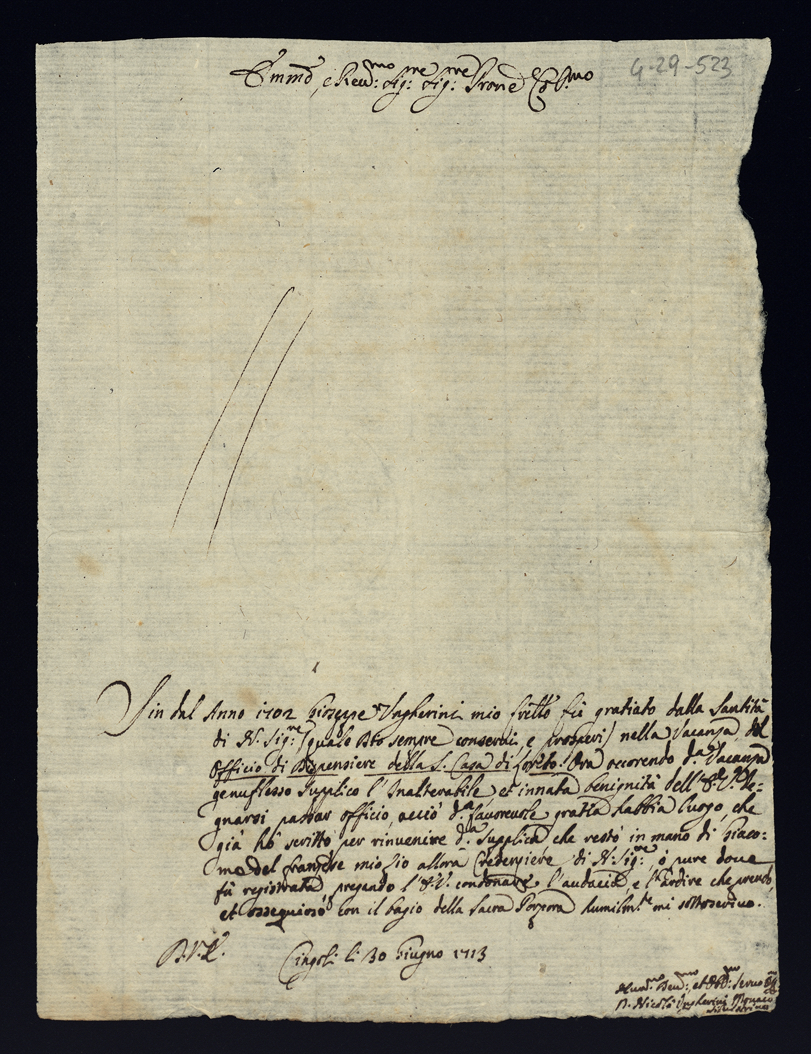 4-29-523
Emmo, e Revmo: Sigre: Sigre: Prone Colmo
Sin dal Anno 1702 Giuseppe Ungherini mio frello fù gratiato dalla Santità
di N. Sigre: (quale Dio sempre conservi, e prosperi) nella Vacanza del
Officio di Dispensiere della S. Casa di Loreto. Ora occorendo da. Vacanza
genuflesso supplico l'Inalterabile et innata benignità dell'E.V. De-
gnarsi passar officio, acciò da. favorevole gratia habbia luogo, che
già hò scritto per rinvenire da. supplica che restò in mano di Giaco-
mo del franzese mio Zio allora Credenziere di N. Sigre, ò pure dove
fù registrata, pregando l'E.V. condonare l'audacia, e l'ardire che prendo,
et ossequioso con il bagio della Sacra Porpora humilmte. mi sottoscrivo.
D.V.E.
Cingoli li 30 Giugno 1713
Revmo:, et Obmo: Servo
D. Nicolà Ungherini Monaco